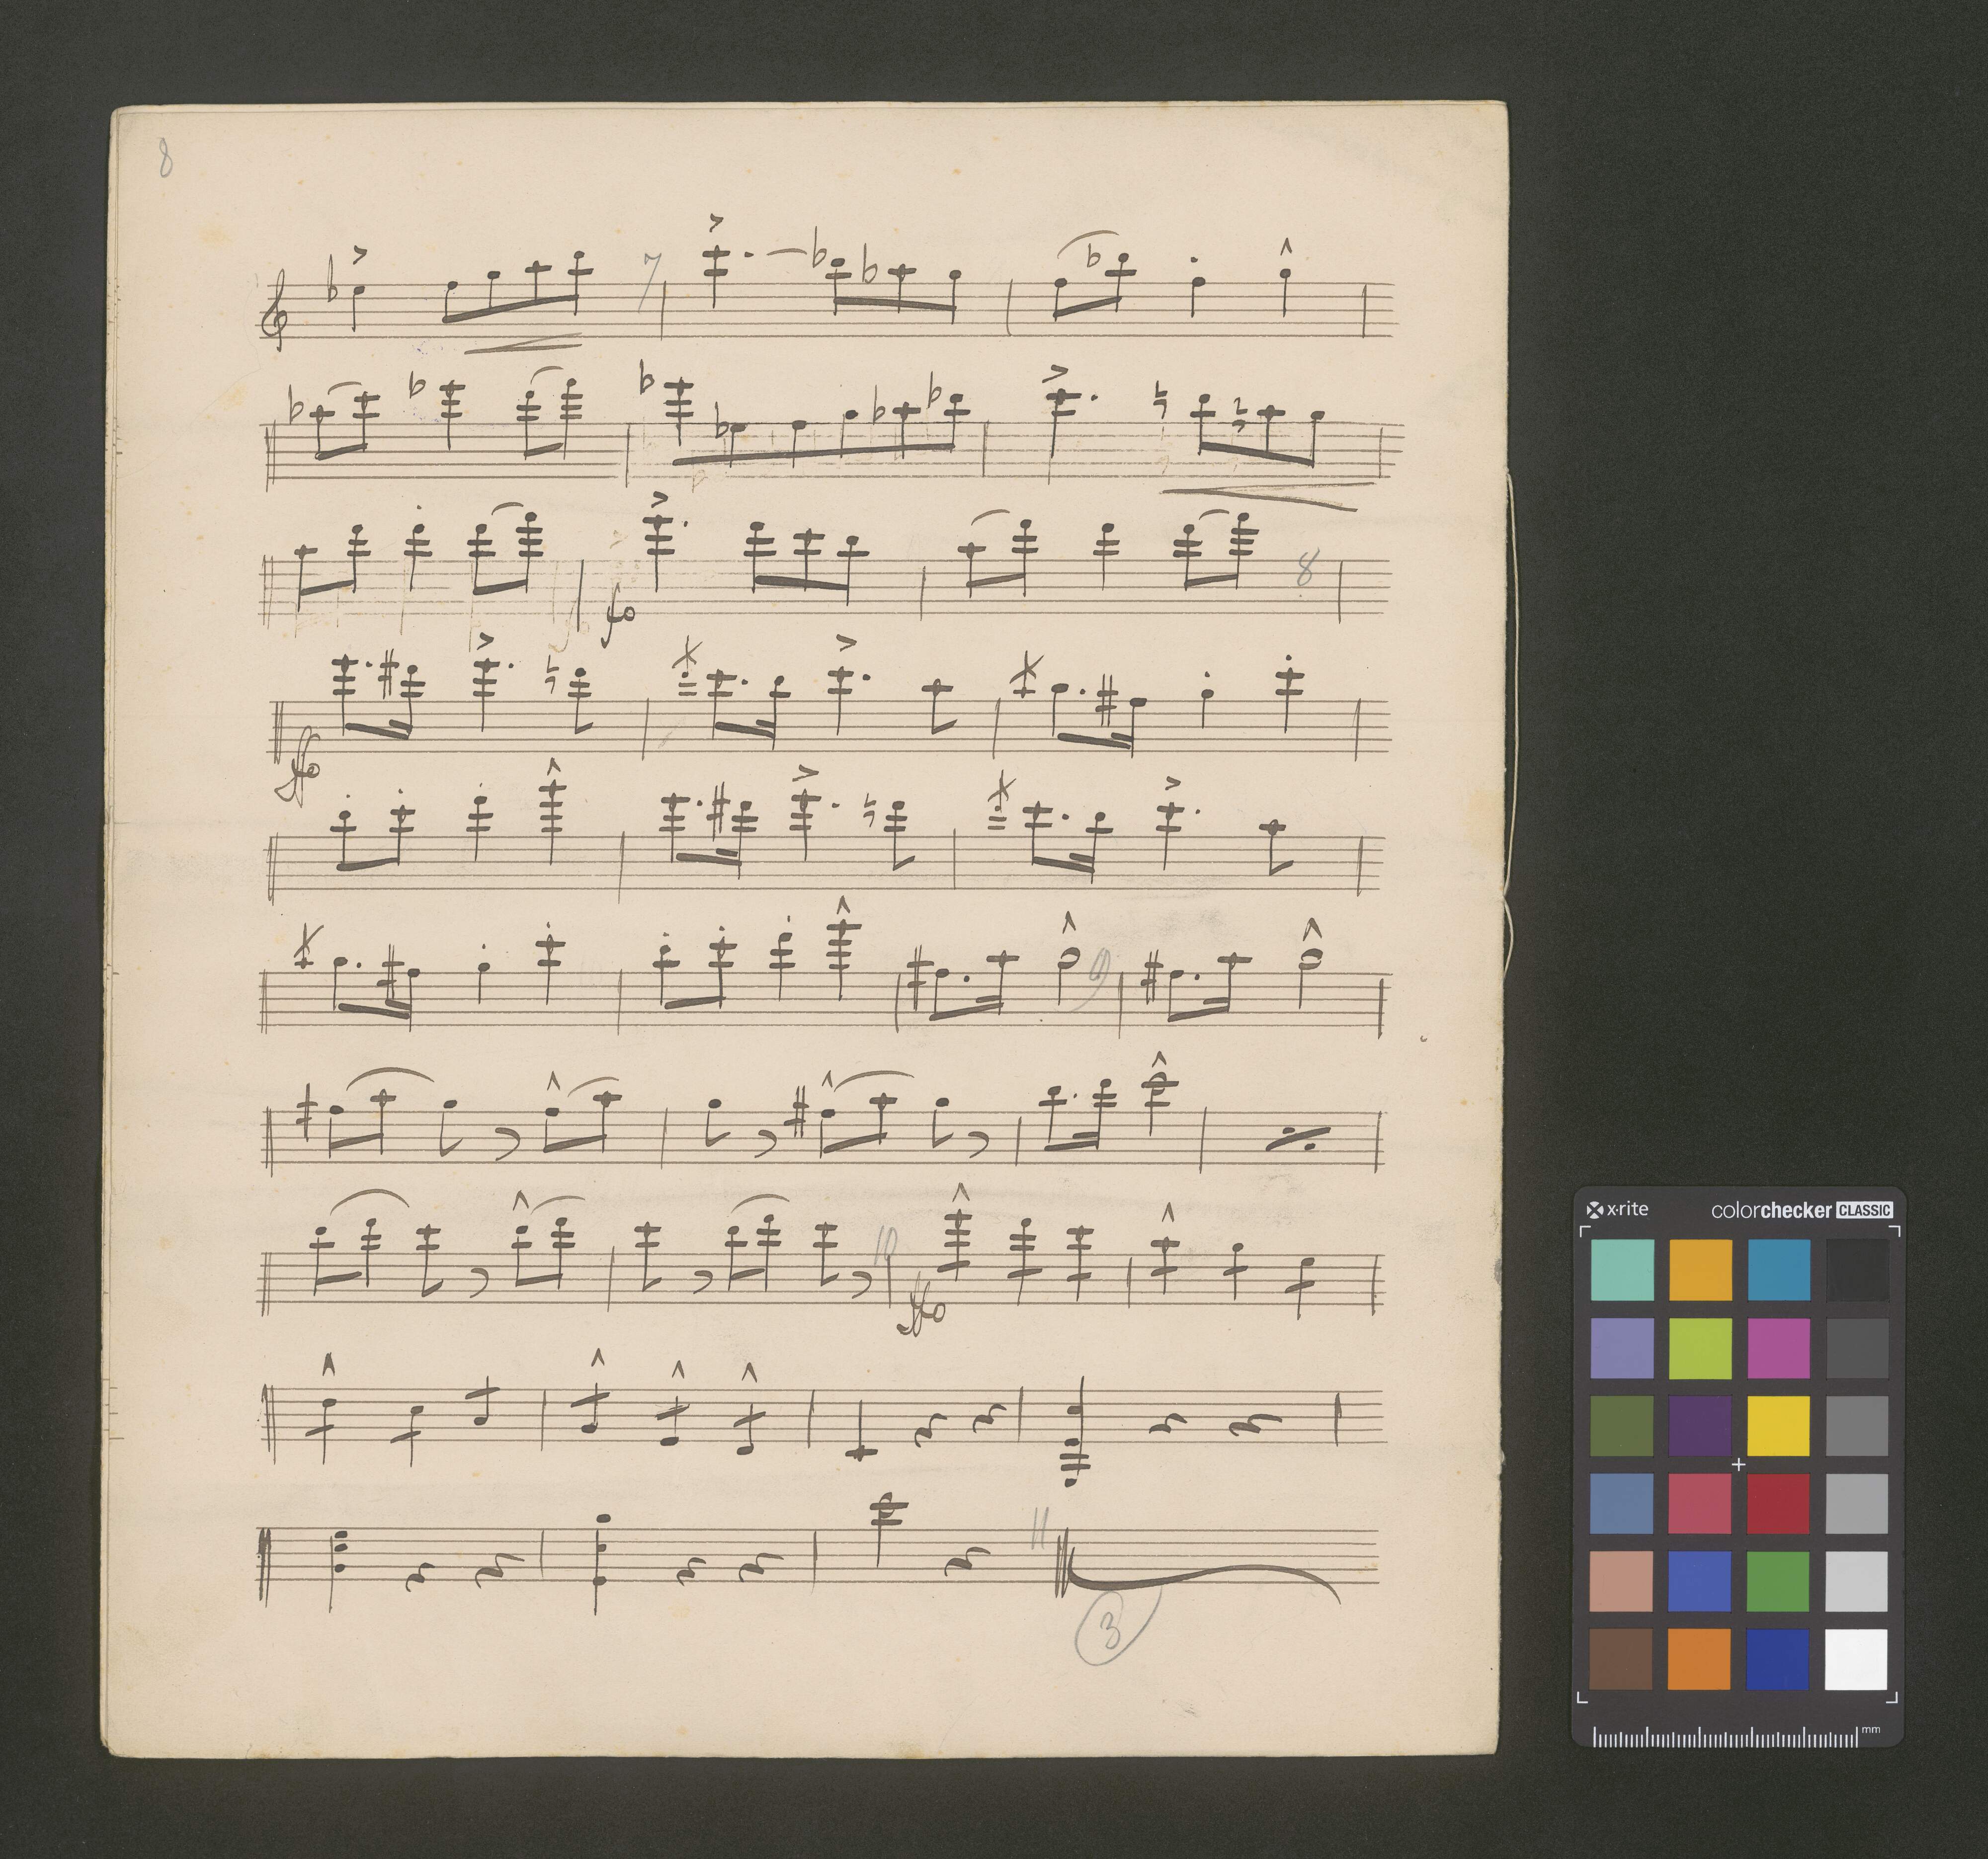 8
7
fo
8
ffo
9
10
ffo
11
3
x·rite colorchecker CLASSIC
mm